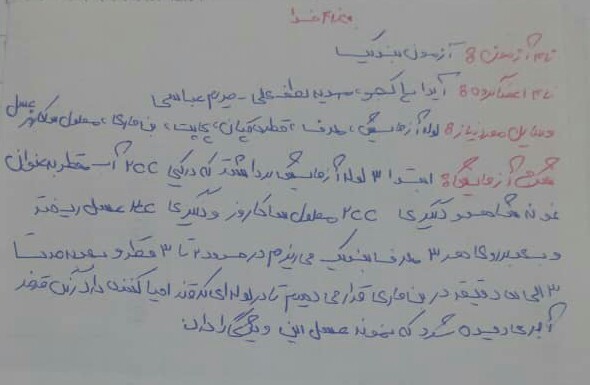 بنام خدا
نام آزمون 8 آزمون بندیکیا
نام اعضا گروه 8 آیدا باکجو، مهدیه لطفعلی - مریم عباسی
وسایل مورد نیاز 8 لوله آزمایش، معرف، قطره چکان، پیپت، بن ماری، محلول ساکارز، عسل
شرح آزمایش 8 ابتدا ۳ لوله آزمایش برداشته که در یکی ۲cc آب مقطر به عنوان
نمونه شاهد و دیگری ۲cc محلول ساکارز و دیگری ۲cc عسل ریخته
و سپس بر روی هر ۳ معرف بندیکت می ریزیم در حدود ۲ تا ۳ قطره و به مدت
۳ الی دقیقه در بن ماری قرار می دهیم تا در لوله ای که قند احیا کننده دارد رنگ قرمز
آجری دیده شود که نمونه عسل این ویژگی را دارد